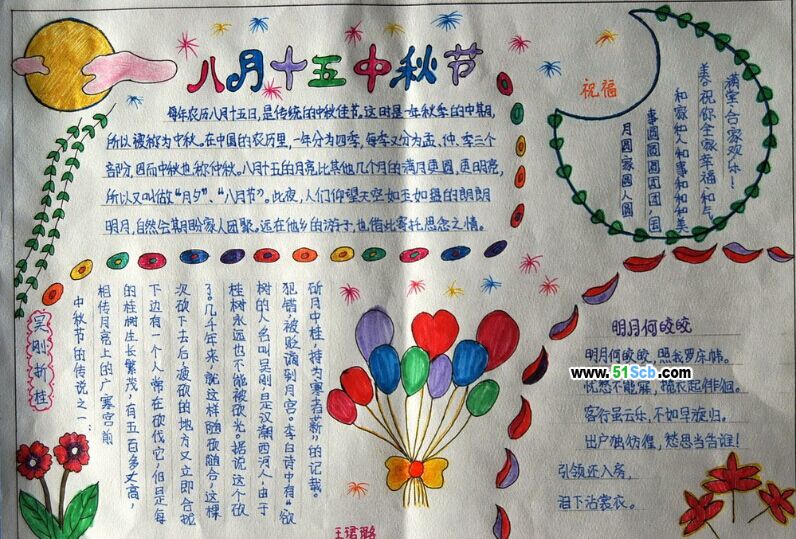 八月十五中秋节
每年农历八月十五日,是传统的中秋佳节。这时是一年秋季的中期,
所以被称为中秋。在中国的农历里,一年分为四季,每季又分为孟、仲、季三个
部分,因而中秋也称仲秋。八月十五的月亮比其他几个月的满月更圆,更明亮,
所以又叫做“月夕”、“八月节”。此夜,人们仰望天空如玉如盘的朗朗
明月,自然会期盼家人团聚。远在他乡的游子,也借此寄托思念之情。
祝福
满堂·合家欢乐!
美·祝你全家幸福·和气
和家和人和事和和和美
事圆圆圆团团,国
月圆家圆人圆
吴刚折桂
中秋节的传说之一:
相传月亮上的广寒宫前
的桂树生长繁茂,有五百多丈高,
下边有一个人常在砍伐它,但是每
次砍下去后,被砍的地方又立即合拢
了。几千年来,就这样随砍随合,这棵
桂树永远也不能被砍光。据说这个砍
树的人名叫吴刚,是汉潮西河人,由于
犯错被贬谪到月宫。李白诗中有“欲
斫月中桂,持为寒者薪”的记载。
明月何皎皎
明月何皎皎,照我罗床帏。
忧愁不能寐,揽衣起徘徊。
客行虽云乐,不如早旋归。
出户独彷徨,愁思当告谁!
引领还入房,
泪下沾裳衣。
www.51Scb.com